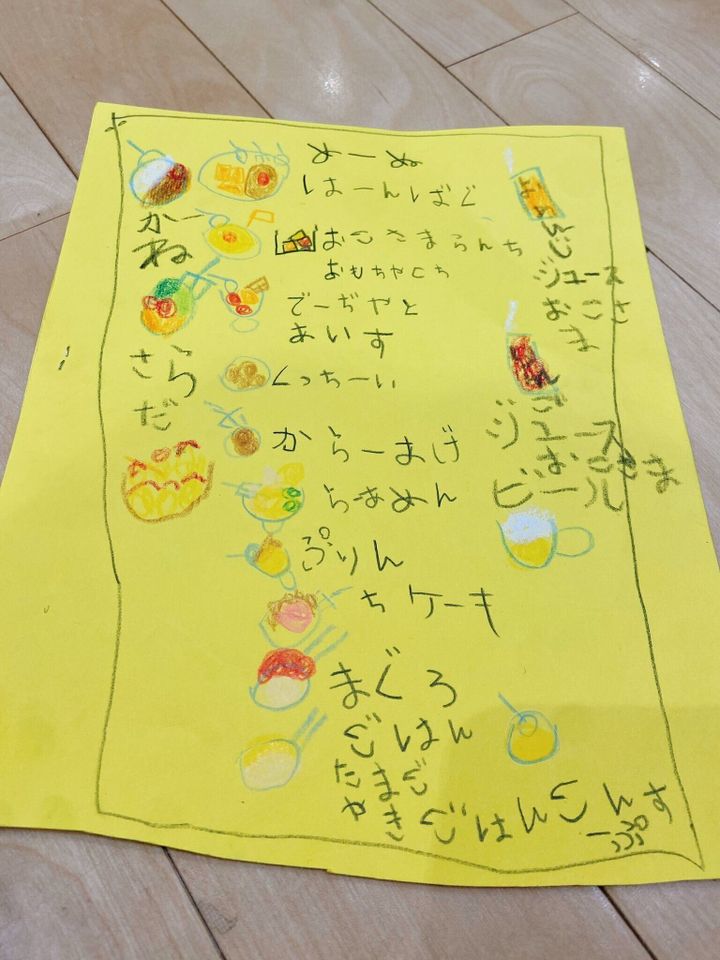 めーぬ
はーんばぐ
かー
ね
おこさまらんち
おもちゃくち
でーぢやと
あいす
さら
だ
くっちーい
からーあげ
らあめん
ぷりん
ちケーキ
まぐろ
ごはん
たまご
やき
ごはんこん
ーぷす
おんじ
ジュース
おこさ
ま
んご
ジュース
おこさま
ビール